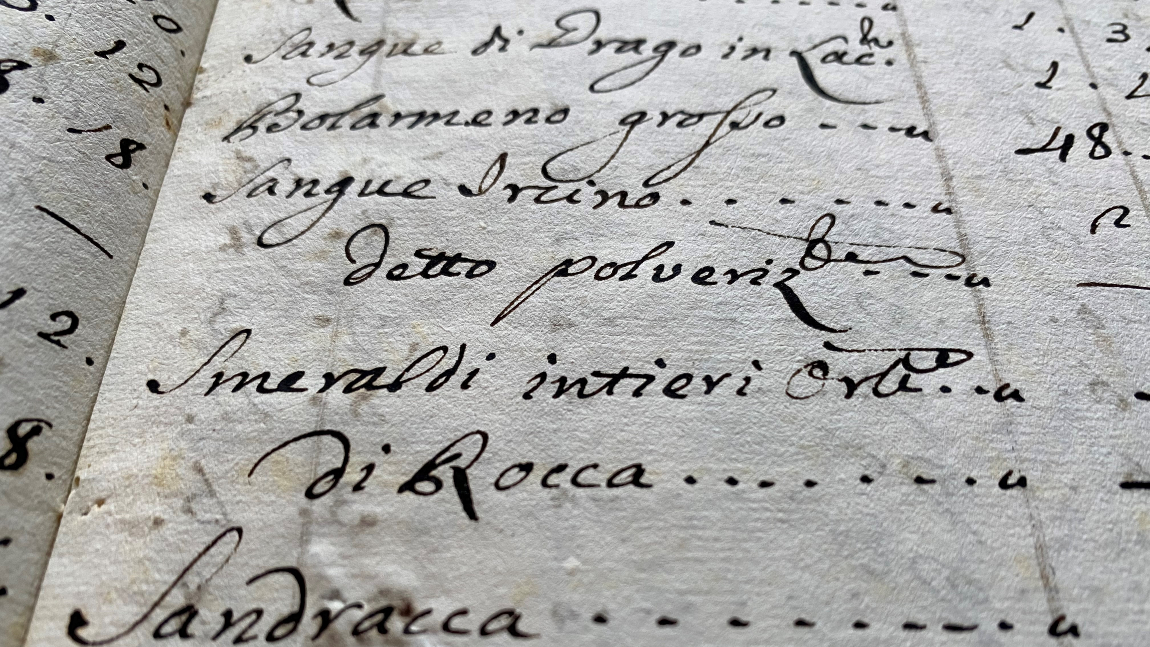 0.
12.
18.
12.
8.
Sangue di Drago in Lac.h 1. 3
Bolarmeno grosso ---u 1. 2
Sangue Ircino. . . . . . . . u 48.
detto polveriz ---u
Smeraldi intieri Orle. . . u
di Rocca . . . . . . . . . u
Sandracca . . . . . . . . . u